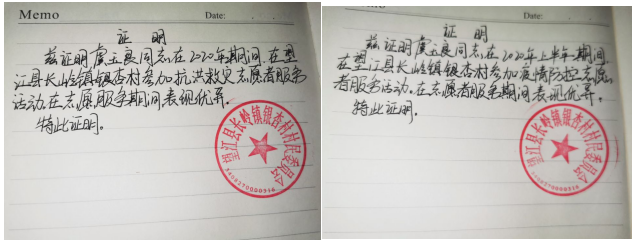 Memo
Date:
证 明
兹证明虞五良同志,在2020年期间,在望
江县长岭镇银杏村参加抗洪救灾志愿者服务
活动,在志愿服务期间表现优异。
特此证明。
望江县长岭镇银杏村村民委员会
Date:
证 明
兹证明虞五良同志,在2020年上半年期间
在望江县长岭镇银杏村参加疫情防控志愿
者服务活动,在志愿者服务期间表现优异。
特此证明。
望江县长岭镇银杏村村民委员会